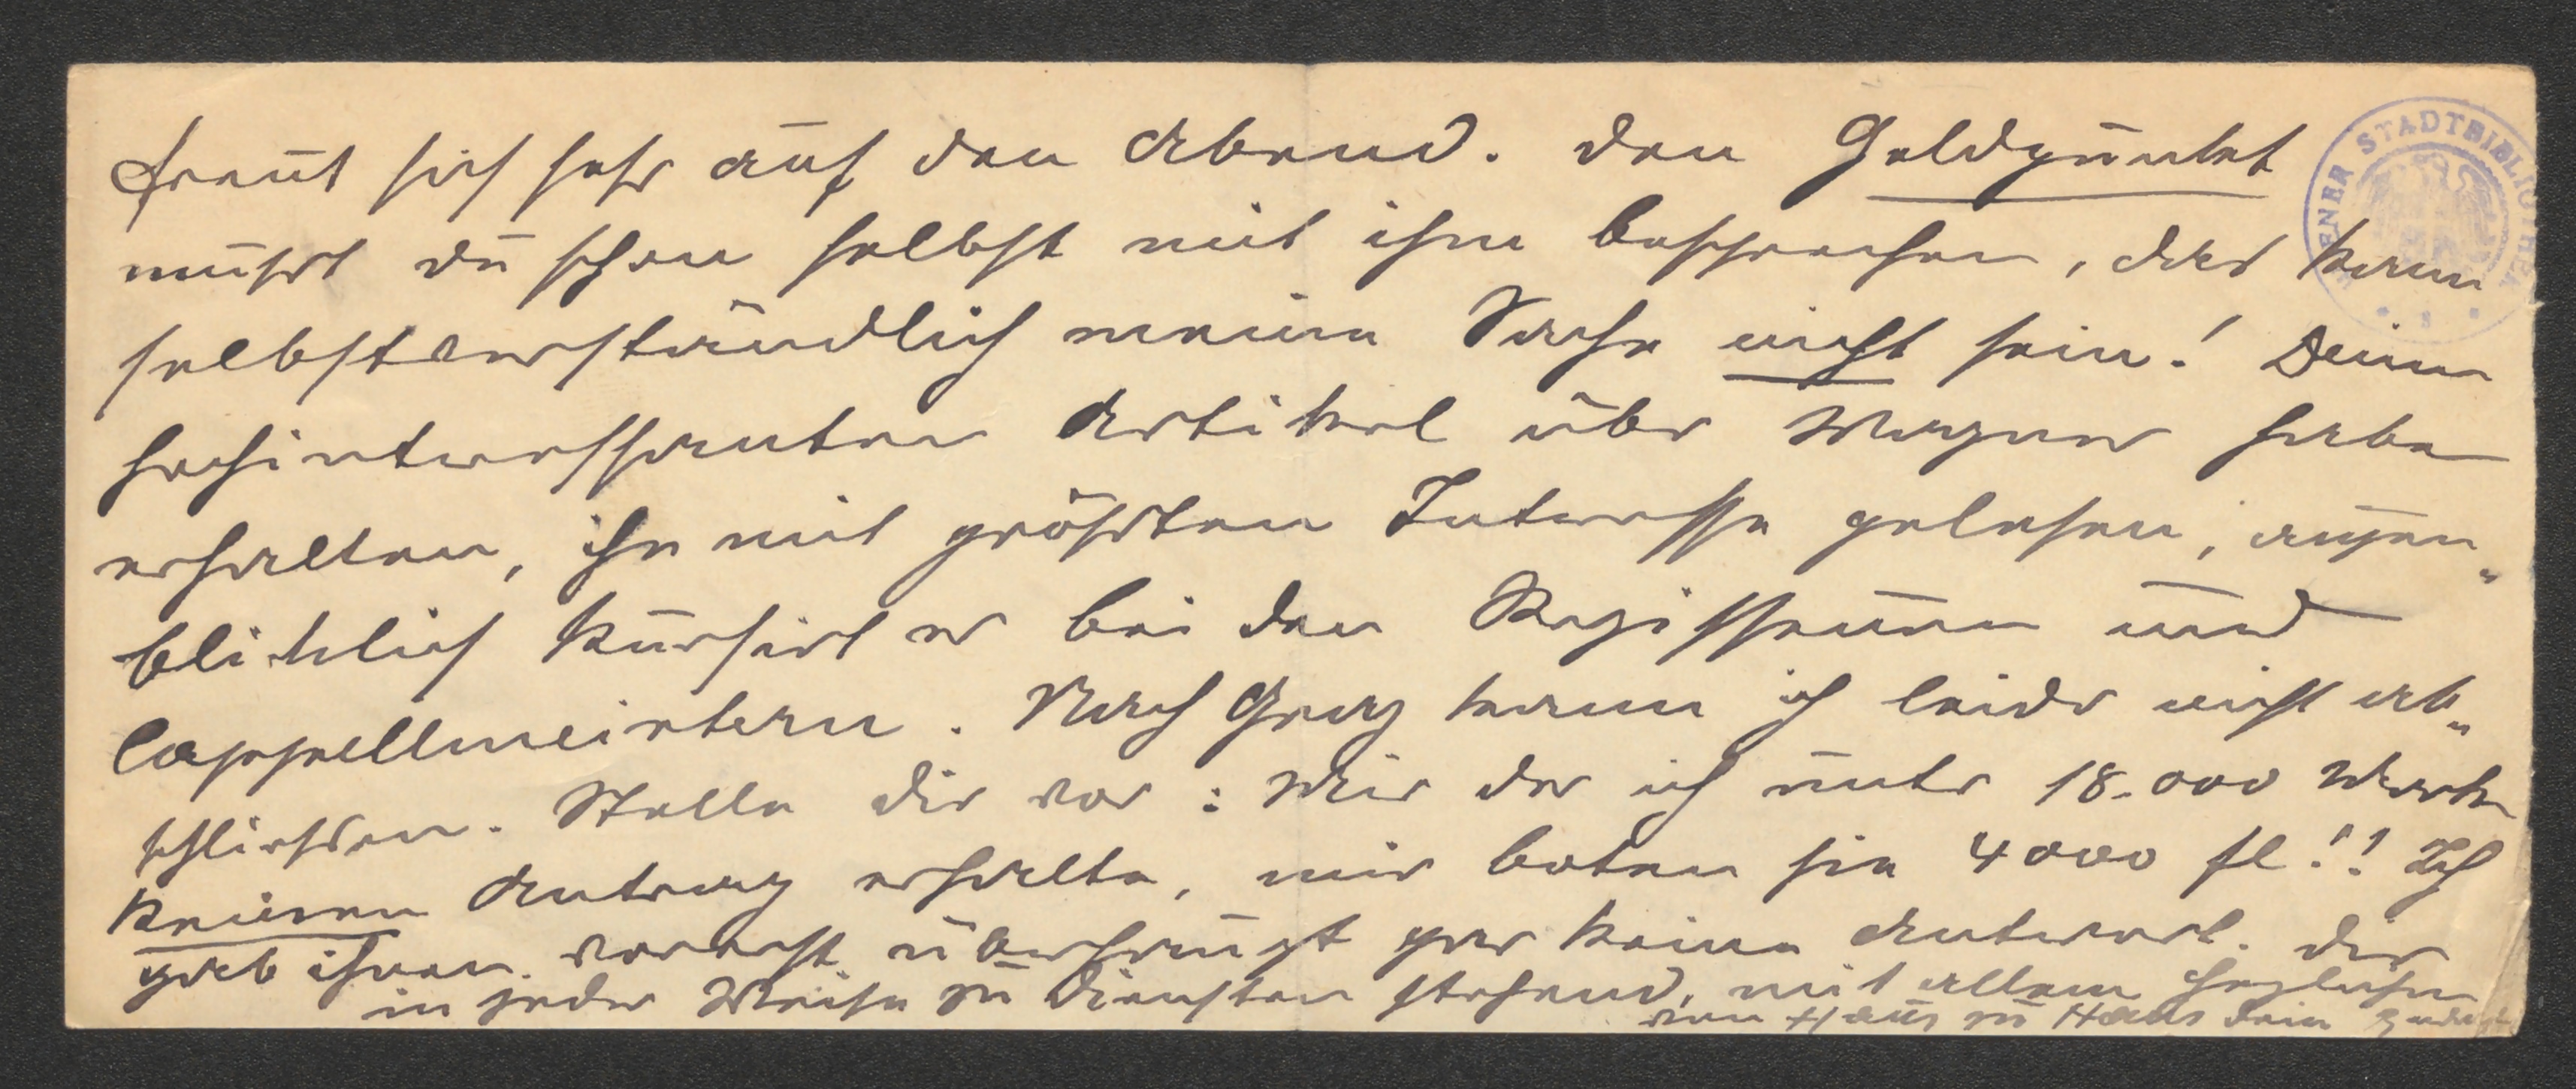 freut sich sehr auf den Abend. Den Geldpunkt
mußt du schon selbst mit ihm besprechen, das kann
selbstverständlich meine Sache nicht sein! Deinen
hochinteressanten Artikel über Wagner habe
erhalten, ihn mit größtem Interesse gelesen, augen„
blicklich kursirt er bei den Regisseuren und
Cappellmeistern. Nach Graz kann ich leider nicht ab„
schließen. Stelle dir vor: Mir der ich unter 18.000 Mark
keinen Antrag erhalte, mir boten sie 4000 fl!! Ich
gab ihnen vorerst überhaupt gar keine Antwort. Dir
in jeder Weise zu Diensten stehend, mit allem Herzlichen
von Haus zu Haus dein
WIENER STADTBIBLIOTHEK